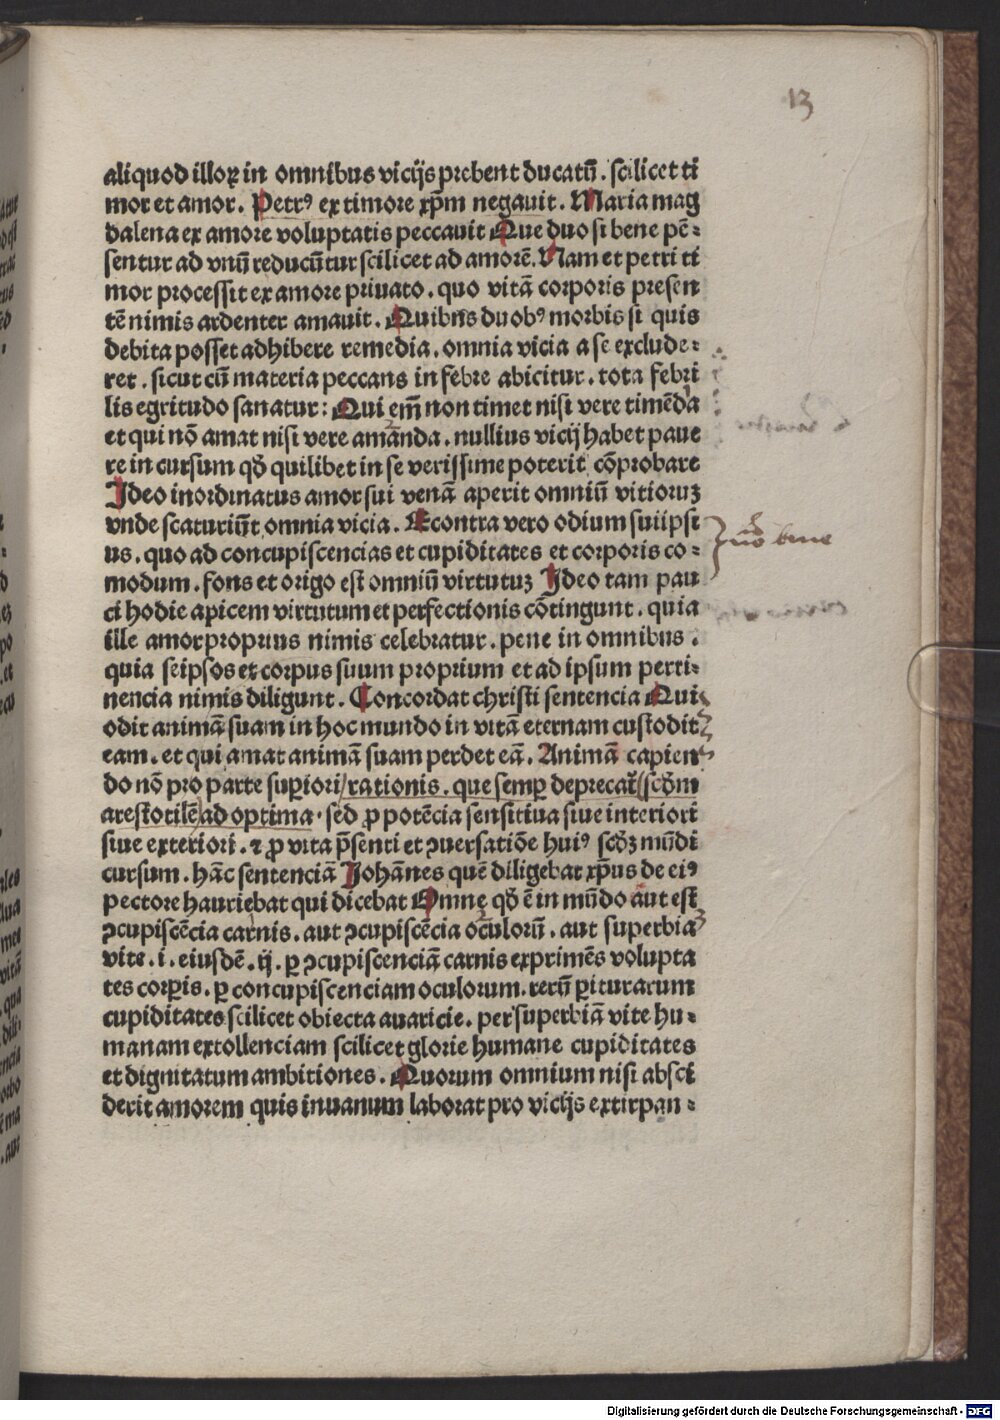 13
aliquod illoꝝ in omnibus vicijs prebent ducatū. scilicet ti
mor et amor. Petrꝰ ex timore xp̄m negauit. Maria mag
dalena ex amore voluptatis peccauit Que duo si bene pē⸗
sentur ad vnū reducūtur scilicet ad amorē. Nam et petri ti
mor processit ex amore priuato. quo vitā corporis presen
tē nimis ardenter amauit. Quibus duobꝰ morbis si quis
debita posset adhibere remedia. omnia vicia a se exclude⸗
ret. sicut cū materia peccans in febre abicitur. tota febri
lis egritudo sanatur: Qui em̄ non timet nisi vere timēda
et qui nō amat nisi vere amanda. nullius vicij habet paue
re in cursum qd̄ quilibet in se verissime poterit cōprobare
Ideo inordinatus amor sui venā aperit omniū vitioruꝫ
vnde scaturiūt omnia vicia. Econtra vero odium sui ipsi
us. quo ad concupiscencias et cupiditates et corporis co⸗
modum. fons et origo est omniū virtutuꝫ Ideo tam pau
ci hodie apicem virtutum et perfectionis cōtingunt. quia
ille amor proprius nimis celebratur. pene in omnibus.
quia seipsos et corpus suum proprium et ad ipsum perti⸗
nencia nimis diligunt. Concordat christi sentencia Qui
odit animā suam in hoc mundo in vitā eternam custodit
eam. et qui amat animā suam perdet eā. Animā capien
do nō pro parte suꝑiori rationis. que semꝑ deprecat᷑ scd̄m
arestotilē ad optima. sed ꝓ potēcia sensitiua siue interiori
siue exteriori. ⁊ ꝓ vita p̄senti et ꝯuersatiōe huiꝰ scd̄ꝫ mūdi
cursum. hāc sentenciā Johānes quē diligebat xp̄us de eiꝰ
pectore hauriebat qui dicebat Omne qd̄ ē in mūdo aut est
ꝯcupiscēcia carnis. aut ꝯcupiscēcia oculorū. aut superbia
vite. i. eiusdē. ij. ꝑ ꝯcupiscenciā carnis exprimēs volupta
tes corꝑis. ꝑ concupiscenciam oculorum. rerū ꝑiturarum
cupiditates scilicet obiecta auaricie. per superbiā vite hu⸗
manam extollenciam scilicet glorie humane cupiditates
et dignitatum ambitiones. Quorum omnium nisi absci
derit amorem quis inuanum laborat pro vicijs extirpan⸗
Digitalisierung gefördert durch die Deutsche Forschungsgemeinschaft - DFG